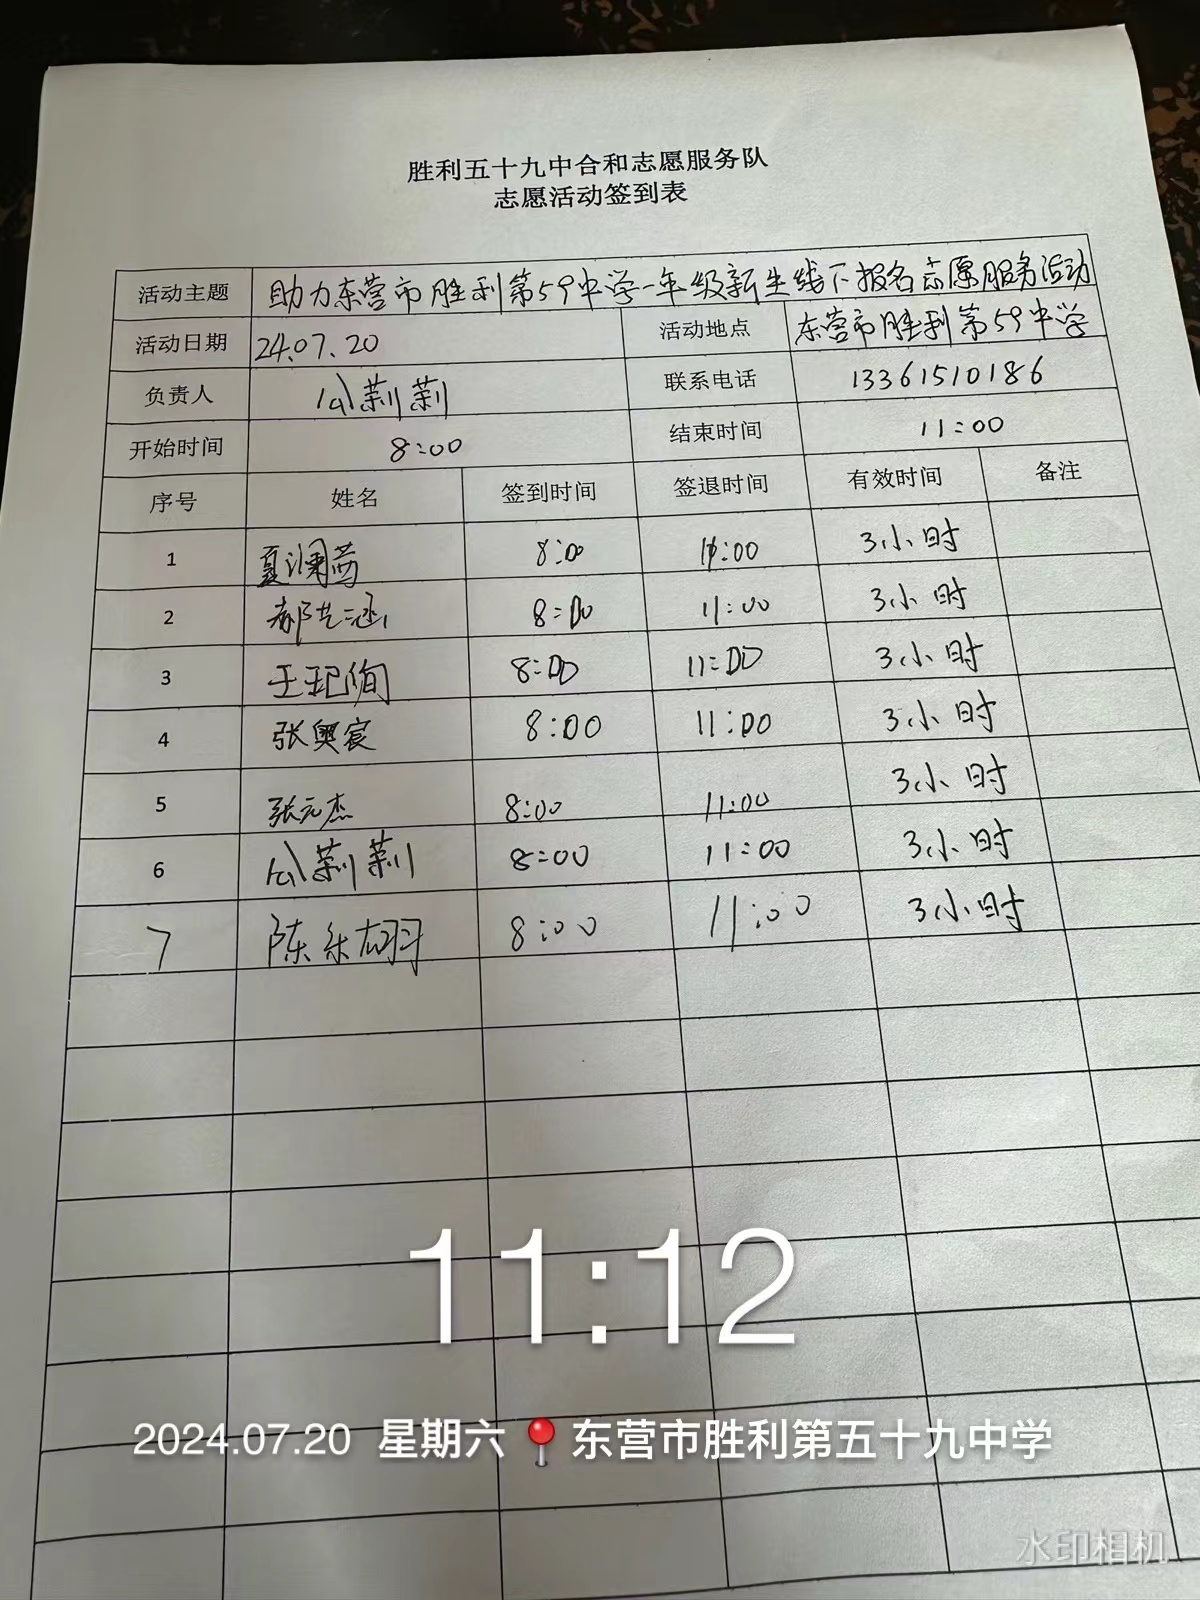 胜利五十九中合和志愿服务队
志愿活动签到表
活动主题 助力东营市胜利第59中学一年级新生线下报名志愿服务活动
活动日期 24.07.20 活动地点 东营市胜利第59中学
负责人 莉莉 联系电话 13361510186
开始时间 8:00 结束时间 11:00
序号 姓名 签到时间 签退时间 有效时间 备注
1 夏澜茜 8:00 11:00 3小时
2 郝艺涵 8:00 11:00 3小时
3 王玘绚 8:00 11:00 3小时
4 张奥宸 8:00 11:00 3小时
5 张元杰 8:00 11:00 3小时
6 莉莉 8:00 11:00 3小时
7 陈乐翊 8:00 11:00 3小时
11:12
2024.07.20 星期六 东营市胜利第五十九中学
水印相机